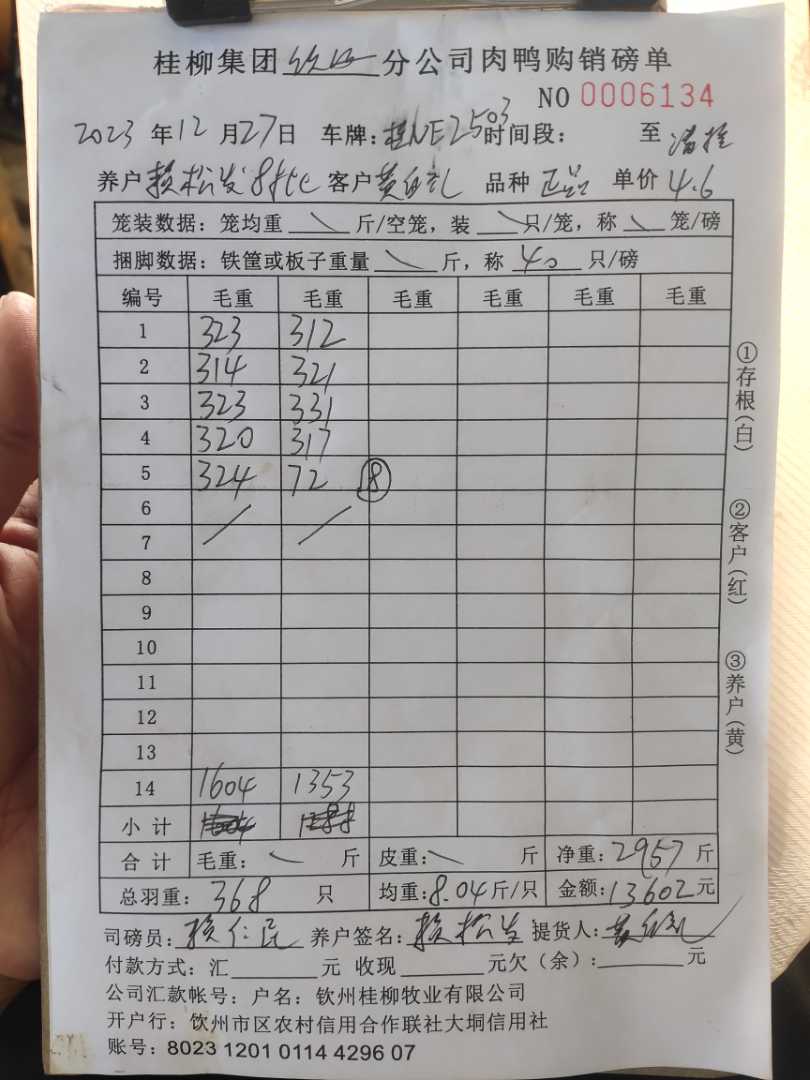 桂柳集团 钦州 分公司肉鸭购销磅单
NO 0006134
2023 年 12 月 27 日 车牌: 桂NE2503 时间段: 至
养户 赖松发 客户 黄 礼 品种 正品 单价 4.6
笼装数据: 笼均重 \ 斤/空笼, 装 \ 只/笼, 称 \ 笼/磅
捆脚数据: 铁筐或板子重量 \ 斤, 称 40 只/磅
编号 毛重 毛重 毛重 毛重 毛重 毛重
1 323 312
2 314 321
3 323 331
4 320 317
5 324 72 ⑧
6
7
8
9
10
11
12
13
14 1604 1353
小 计
合 计 毛重: \ 斤 皮重: \ 斤 净重: 2957 斤
总羽重: 368 只 均重: 8.04 斤/只 金额: 13602 元
司磅员: 赖仁民 养户签名: 赖松发 提货人: 黄 礼
付款方式: 汇 元 收现 元欠(余): 元
公司汇款帐号: 户名: 钦州桂柳牧业有限公司
开户行: 钦州市区农村信用合作联社大垌信用社
账号: 8023 1201 0114 4296 07
①存根(白)
②客户(红)
③养户(黄)